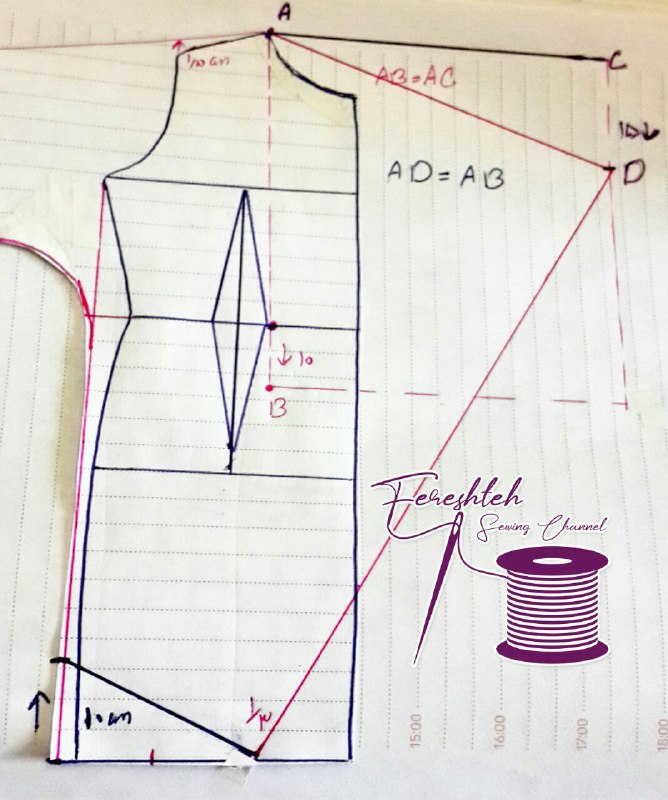 A
C
AB=AC
D
AD=AB
↓ 10
B
Fereshteh
Sewing Channel
۱/۳
10 cm
15:00
16:00
17:00
18:00